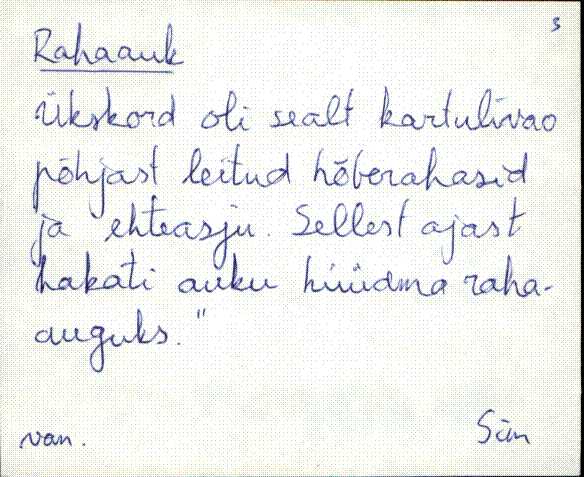 s
Rahaauk
Ükskord oli sealt kartulivao
põhjast leitud hõberahasid
ja ehteasju. Sellest ajast
hakati auku hüüdma raha-
auguks."
van.
Sim